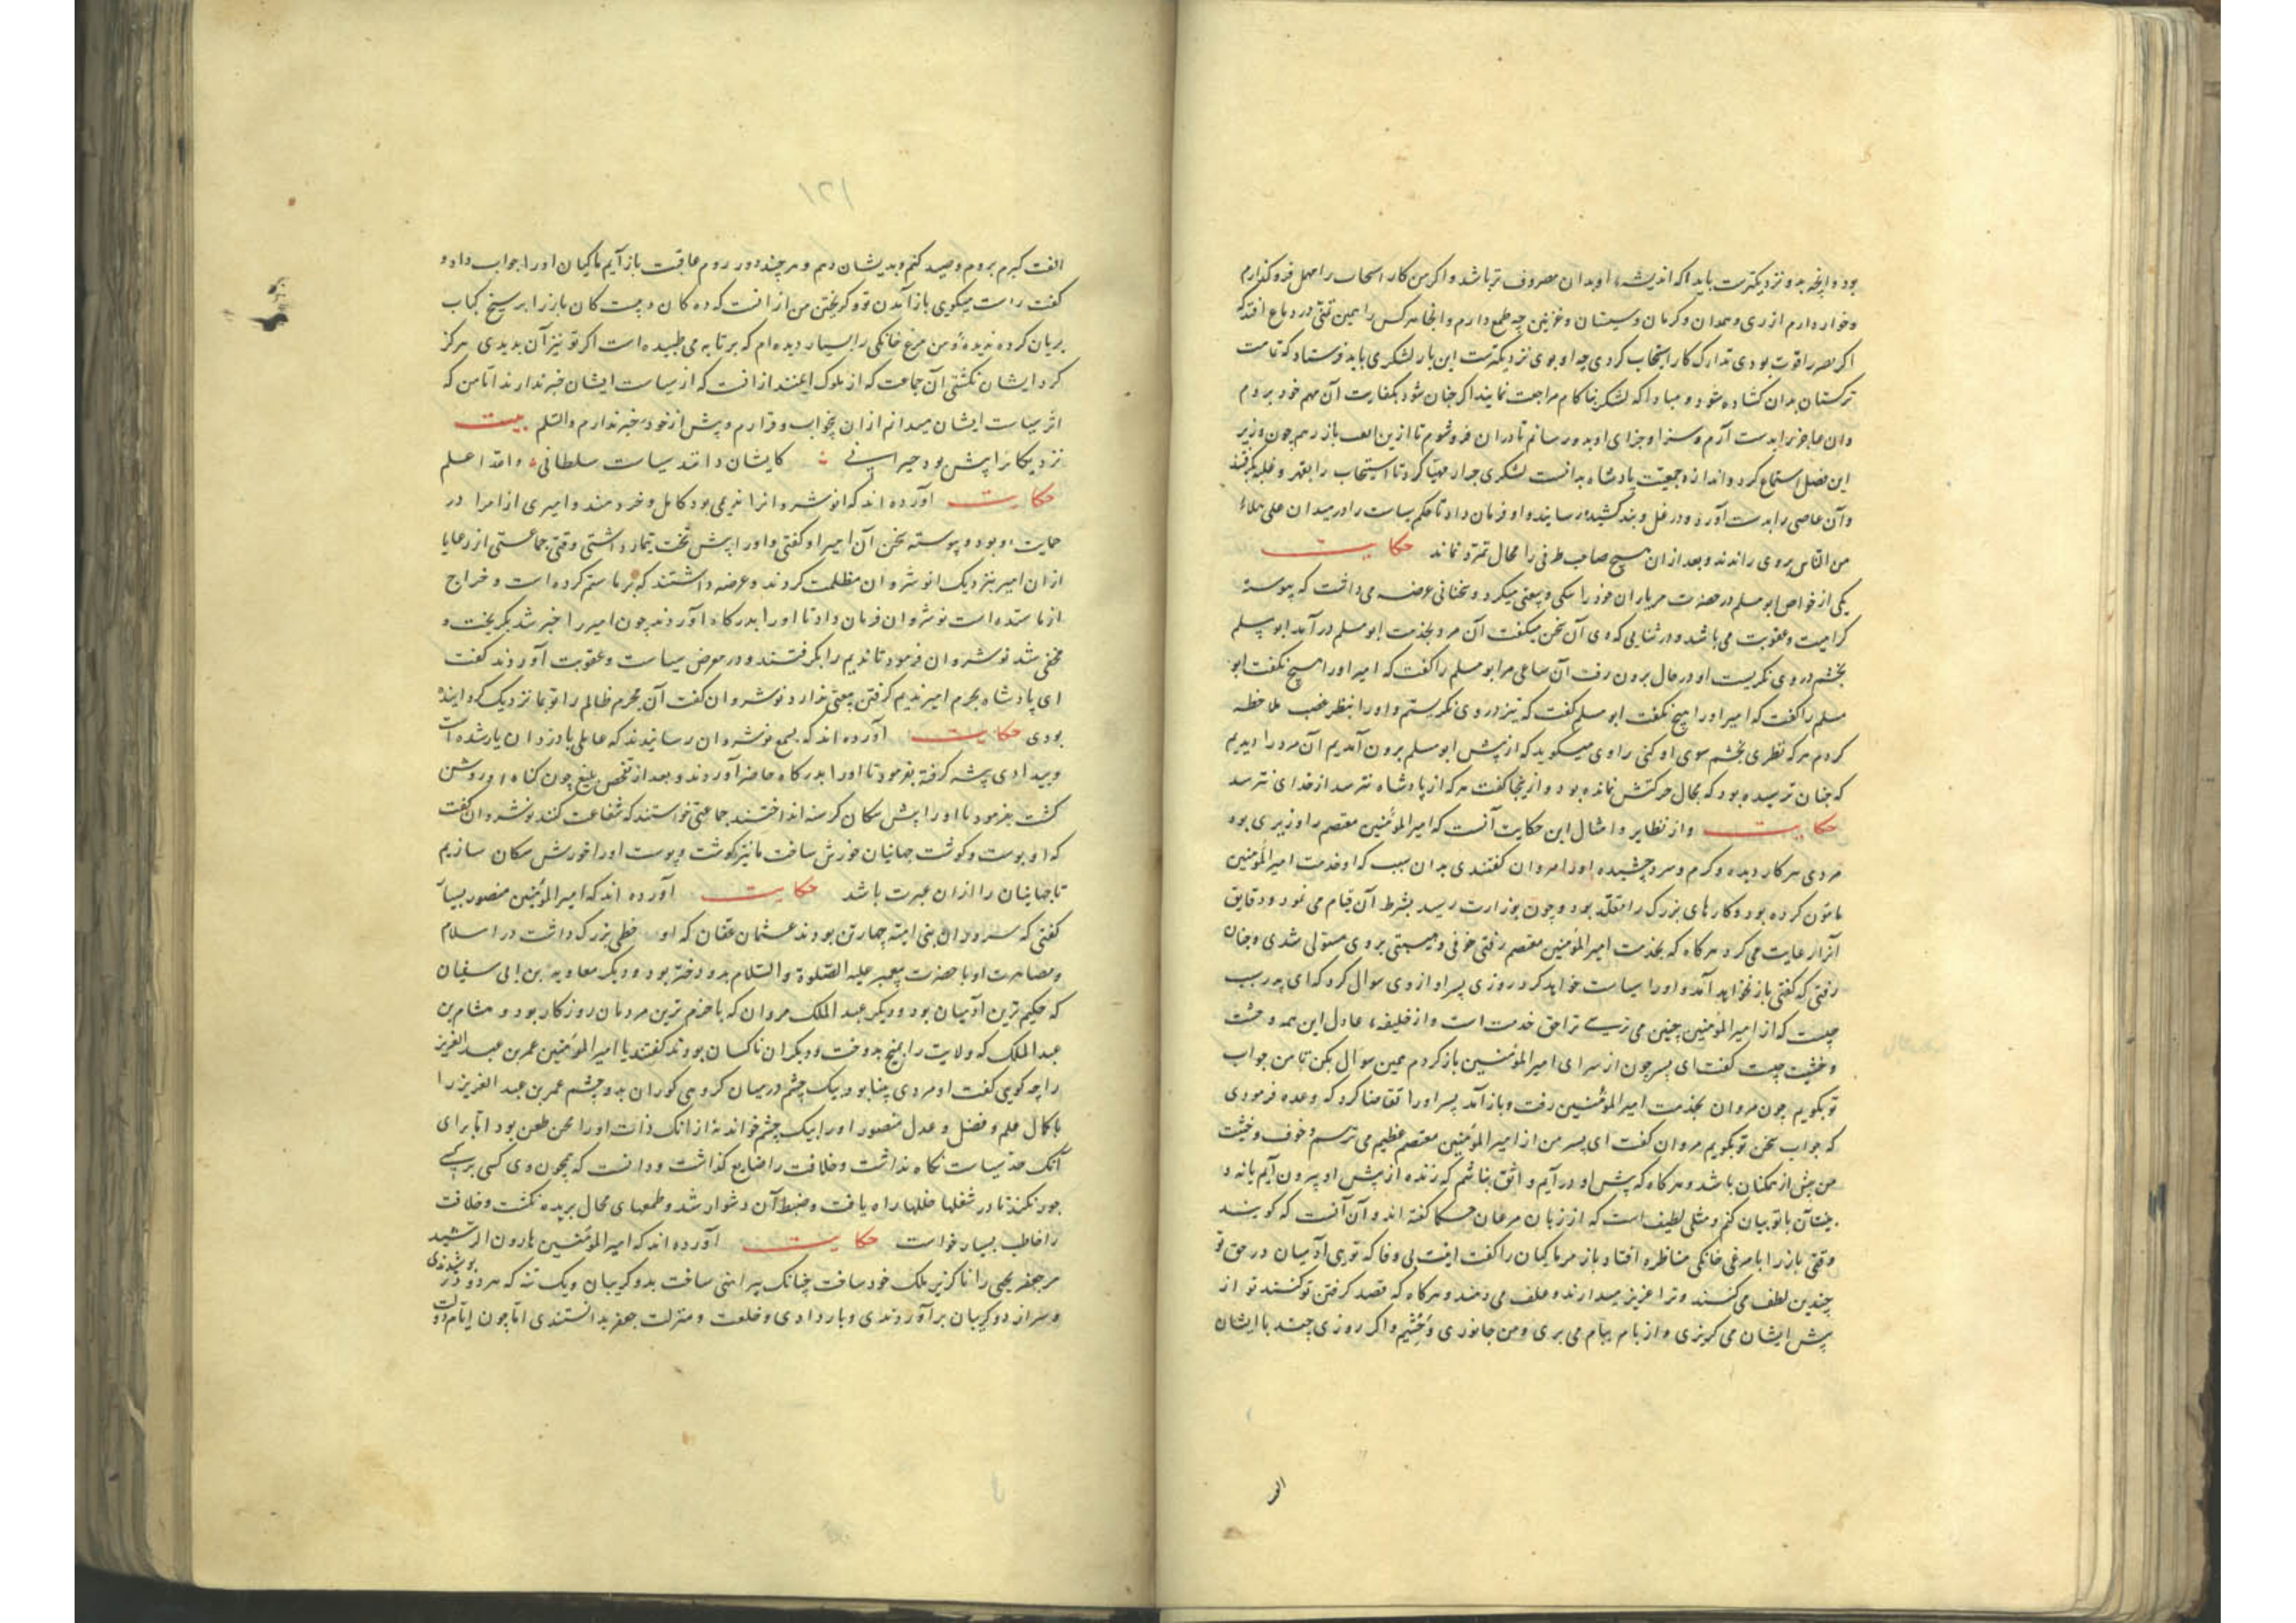 بود و آنچه بدو نزدیکترست باید که اندیشهٔ او بدان مصروف تر باشد و اکر من کار اسحاب را مهمل فرو کذارم
و خوار دارم از ری و همدان و کرمان و سیستان و غزنین چه طمع دارم و آنجا هر کس را همین تمنی در دماغ افتد که
اکر مصر را قوت بودی تدارک کار اسحاب کردی چه او بوی نزدیکترست این بار لشکری باید فرستاد که تا مت
ترکستان بدان کشاده شود و مبادا که لشکر بناکام مراجعت نمایند اکر چنان شود بکفایت آن مهم خود بروم
و آن را بدست آرم و سزا و جزای او بدو رسانم تا دران فرو شوم تا ازین باز رهم چون وزیر
این فصل استماع کرد و اندازه جمعیت پادشاه بدانست لشکری جرار مهیا کرد تا اسحاب را بقهر و غلبه بکرفتند
و آن عاصی را بدست آورد و در غل و بند کشیده رسانید و او فرمان داد تا حکم سیاست را در میدان علی ملاء
من الناس بروی راندند و بعد ازان هیچ صاحب طرفی را مجال تمرد نماند حکایت
یکی از خواص ابو مسلم در حضرت مر یاران خود را میکرد و سخنانی عرضه می داشت که پیوسته
کرامیت و عقوبت می باشد و در اثنایی که وی آن سخن میکفت آن مرد بخدمت ابو مسلم درآمد ابو مسلم
بخشم در وی نکریست او در حال برون رفت آن ساعی مر ابو مسلم را کفت که امیر او را هیچ نکفت ابو
مسلم را کفت که امیر او را هیچ نکفت ابو مسلم کفت که تیز در وی نکریستم و او را بنظر غضب ملاحظه
کردم هر که نظری بخشم سوی او کنی راوی میکوید که از پیش ابو مسلم برون آمدیم آن مرد را دیدیم
که چنان ترسیده بود که مجال حرکتش نمانده بود و ازینجا کفت هر که از پادشاه نترسد از خدای نترسد
حکایت و از نظایر و امثال این حکایت آنست که امیر المؤمنین معتصم را وزیری بود
مردی هر کار دیده و کرم و سرد چشیده او را مروان کفتندی بدان سبب که او خدمت امیر المؤمنین
مامون کرده بود و کارهای بزرک را متقلد بود و چون بوزارت رسید بشرط آن قیام می نمود و دقایق
آنرا رعایت می کرد هر کاه که بخدمت امیر المؤمنین معتصم رفتی خوفی و هیبتی بر وی مستولی شدی و چنان
رفتی که کفتی باز نخواهد آمد و او را سیاست خواهد کرد روزی پسر او از وی سوال کرد که ای پدر سبب
چیست که از امیر المؤمنین چنین می ترسی ترا حق خدمت است و از خلیفهٔ عادل این همه وحشت
و خشیت چیست کفت ای پسر چون از سرای امیر المؤمنین باز کردم همین سوال بکن تا من جواب
تو بکویم چون مروان بخدمت امیر المؤمنین رفت و باز آمد پسر او را تقاضا کرد که وعده فرمودی
که جواب سخن تو بکویم مروان کفت ای پسر من از امیر المؤمنین معتصم عظیم می ترسم و خوف و خشیت
من بیش از همکنان باشد و هر کاه که پیش او درآیم واثق نباشم که زنده از پیش او بیرون آیم یا نه و
مثال با تو بیان کنم و مثلی لطیف است که از زبان مرغان حکما کفته اند و آن آنست که کویند
وقتی باز را با مرغی خانکی مناظره افتاد باز مر ماکیان را کفت اینت بی وفا که توی آدمیان در حق تو
چندین لطف می کنند و ترا عزیز میدارند و علف می دهند و هر کاه که قصد کرفتن تو کنند تو از
پیش ایشان می کریزی و از بام ببام می پری و من جانوری وحشیم و اکر روزی چند با ایشان
الف
۱۲۱
الفت کیرم بروم و صید کنم و بدیشان دهم و هر چند دور روم عاقبت باز آیم ماکیان او را جواب داد و
کفت راست میکویی باز آمدن تو و کریختن من از آنست که تو هرکز باز را بر سیخ کباب
بریان کرده ندیدهٔ و من مرغ خانکی را بسیار دیده ام که بر تابه می طپیده است اکر تو نیز آن بدیدی هرکز
کرد ایشان نکشتی آن جماعت که از ملوک ایمنند از آنست که از سیاست ایشان خبر ندارند اما من که
اثر سیاست ایشان میدانم ازان بیخواب و قرارم و بیش از خود خبر ندارم والسلم بیت
نزدیکان را بیش بود حیرانی کایشان دانند سیاست سلطانی والله اعلم
حکایت آورده اند که انوشروان را ندیمی بود کامل و خردمند و امیری از امرا در
حمایت او بود و پیوسته سخن آن امیر او کفتی و او را پیش تخت تیمار داشتی وقتی جماعتی از رعایا
ازان امیر بنزدیک انوشروان مظلمت کردند و عرضه داشتند که بر ما ستم کرده است و خراج
از ما ستده است نوشروان فرمان داد تا او را بدرکاه آوردند چون امیر را خبر شد بکریخت و
مخفی شد نوشروان فرمود تا ندیم را بکرفتند و در معرض سیاست و عقوبت آوردند کفت
ای پادشاه بجرم امیر ندیم کرفتن معنی ندارد نوشروان کفت آن مجرم ظالم را تو بما نزدیک کردانیده
بودی حکایت آورده اند که بسمع نوشروان رسانیدند که عاملی با دزدان یار شده است
و بیدادی پیشه کرفته بفرمود تا او را بدرکاه حاضر آوردند و بعد از تفحص بلیغ چون کناه او روشن
کشت بفرمود تا او را پیش سکان کرسنه انداختند جماعتی خواستند که شفاعت کنند نوشروان کفت
که او پوست و کوشت جهانیان خورش ساخت ما نیز کوشت و پوست او را خورش سکان سازیم
تا جهانیان را ازان عبرت باشد حکایت آورده اند که امیر المؤمنین منصور بسیار
کفتی که سروران بنی امیه چهار تن بودند عثمان عفان که او خطی بزرک داشت در اسلام
و مصاهرت او با حضرت پیغمبر علیه الصلوة والسلام بدو دختر بود و دیکر معاویه بن ابی سفیان
که حکیم ترین آدمیان بود و دیکر عبد الملک مروان که با حزم ترین مردمان روزکار بود و هشام بن
عبد الملک که ولایت را بمیخ بدوخت و دیکران ناکسان بودند کفتند یا امیر المؤمنین عمر بن عبد العزیز
را چه کویی کفت او مردی بینا بود بیک چشم در میان کروهی کوران بدو چشم عمر بن عبد العزیز را
با کمال علم و فضل و عدل منصور او را بیک چشم خواند نه از انک ذات او را محل طعن بود اما برای
آنک حد سیاست نکاه نداشت و خلافت را ضایع کذاشت و دانست که همچون وی کسی بر کسی
جور نکند تا در شغلها خللها راه یافت و ضبط آن دشوار شد و طمعهای محال بریده نکشت و خلافت
را خاطب بسیار خواست حکایت آورده اند که امیر المؤمنین هارون الرشید
مر جعفر یحیی را ناکزیر ملک خود ساخت چنانک پیراهنی ساخت بدو کریبان و یک تنه که هر دو در پوشیدندی
و سر از دو کریبان برآوردندی و بار دادی و خلعت و منزلت جعفر بدانستندی اما چون ایام دولت